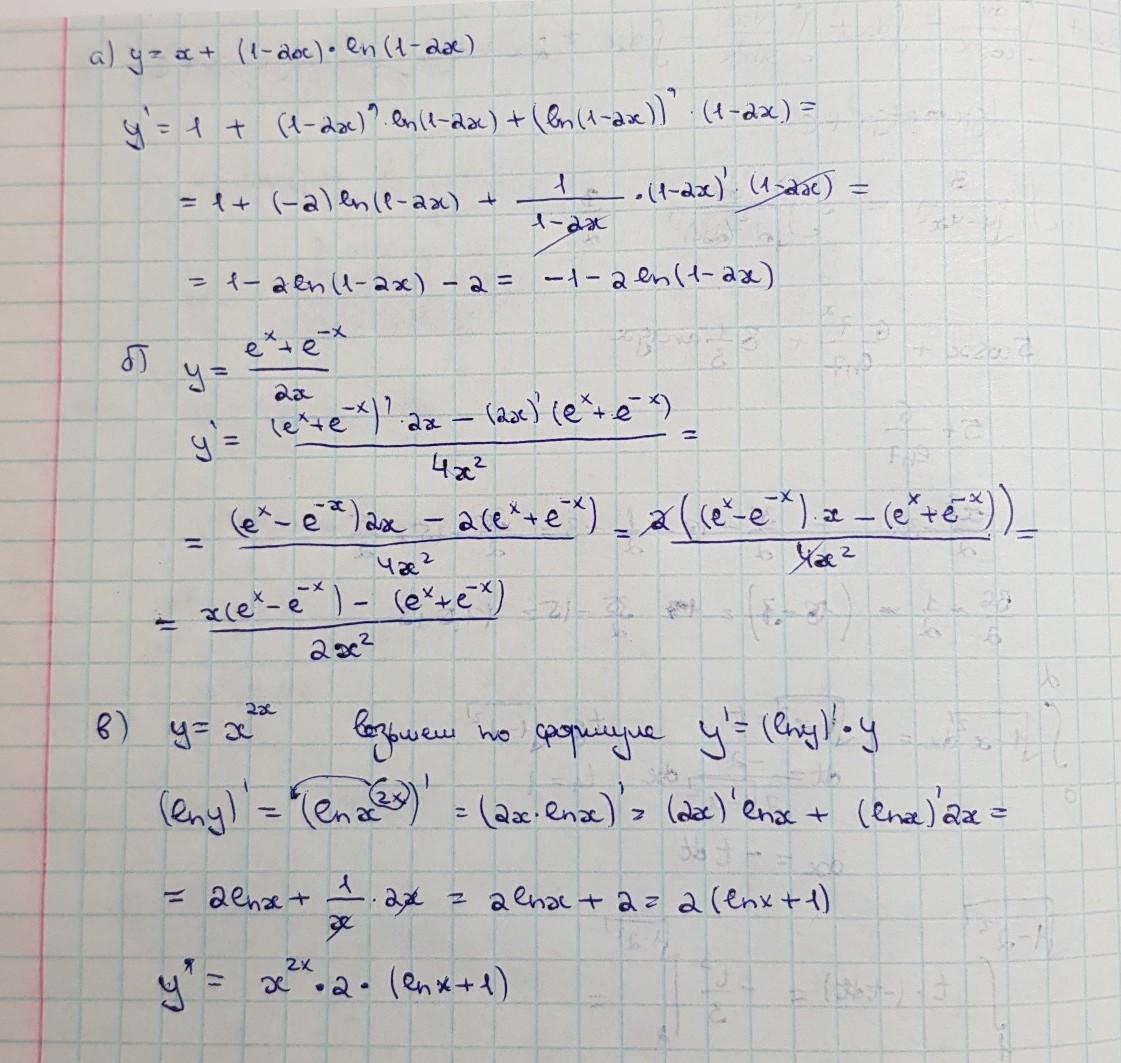 а) y = x + (1-2x)·ln(1-2x)
y' = 1 + (1-2x)'·ln(1-2x) + (ln(1-2x))'·(1-2x) =
= 1 + (-2)ln(1-2x) + 1/(1-2x)·(1-2x)'·(1-2x) =
= 1 - 2ln(1-2x) - 2 = -1 - 2ln(1-2x)
б) y = (e^x + e^-x)/2x
y' = ((e^x + e^-x)'·2x - (2x)'(e^x + e^-x))/4x² =
= ((e^x - e^-x)2x - 2(e^x + e^-x))/4x² = 2((e^x - e^-x)·x - (e^x + e^-x))/4x² =
= (x(e^x - e^-x) - (e^x + e^-x))/2x²
в) y = x^2x возьмем по формуле y' = (lny)'·y
(lny)' = (lnx^2x)' = (2x·lnx)' = (2x)'lnx + (lnx)'2x =
= 2lnx + 1/x·2x = 2lnx + 2 = 2(lnx+1)
y' = x^2x·2·(lnx+1)